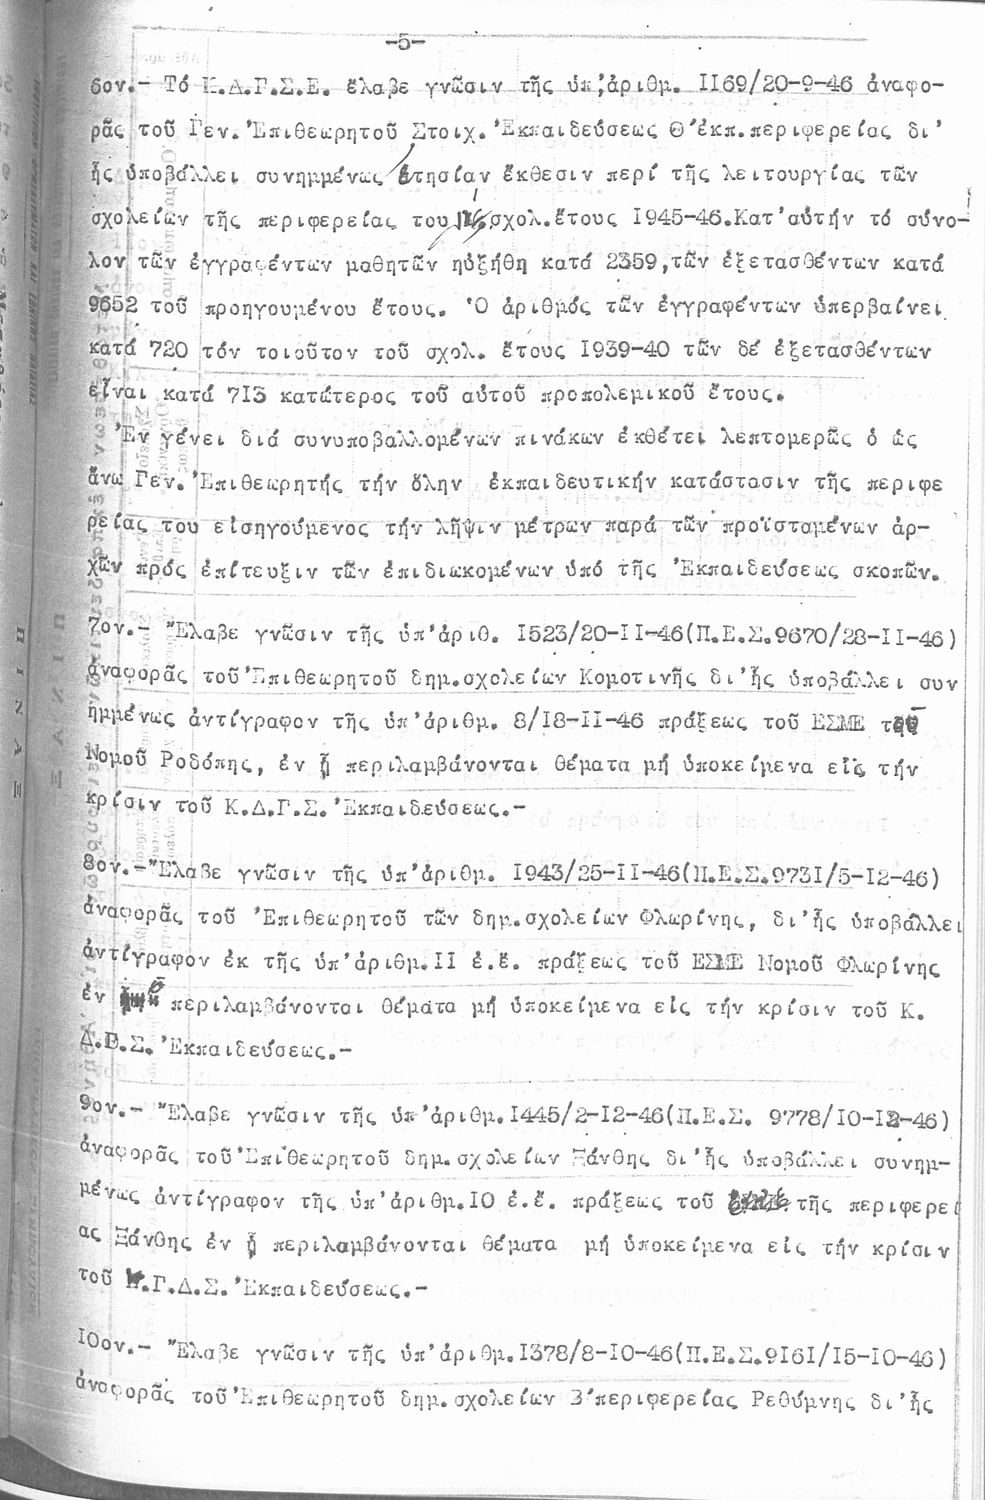 -5-
6ον.- Τό Κ.Δ.Γ.Σ.Ε. ἔλαβε γνῶσιν τῆς ὑπ'ἀριθμ. ΙΙ69/20-9-46 ἀναφο-
ρᾶς τοῦ Γεν.Ἐπιθεωρητοῦ Στοιχ.Ἐκπαιδεύσεως Θ'ἐκπ.περιφερείας δι'
ἧς ὑποβάλλει συνημμένως ἐτησίαν ἔκθεσιν περί τῆς λειτουργίας τῶν
σχολείων τῆς περιφερείας του σχολ.ἔτους Ι945-46.Κατ'αὐτήν τό σύνο-
λον τῶν ἐγγραφέντων μαθητῶν ηὐξήθη κατά 2359,τῶν ἐξετασθέντων κατά
9652 τοῦ προηγουμένου ἔτους. Ὁ ἀριθμός τῶν ἐγγραφέντων ὑπερβαίνει
κατά 720 τόν τοιοῦτον τοῦ σχολ. ἔτους Ι939-40 τῶν δέ ἐξετασθέντων
εἶναι κατά 7Ι3 κατώτερος τοῦ αὐτοῦ προπολεμικοῦ ἔτους.
Ἐν γένει διά συνυποβαλλομένων πινάκων ἐκθέτει λεπτομερῶς ὁ ὡς
ἄνω Γεν.Ἐπιθεωρητής τήν ὅλην ἐκπαιδευτικήν κατάστασιν τῆς περιφε
ρείας του εἰσηγούμενος τήν λῆψιν μέτρων παρά τῶν προϊσταμένων ἀρ-
χῶν πρός ἐπίτευξιν τῶν ἐπιδιωκομένων ὑπό τῆς Ἐκπαιδεύσεως σκοπῶν.
7ον.- Ἔλαβε γνῶσιν τῆς ὑπ'ἀριθ. Ι523/20-ΙΙ-46(Π.Ε.Σ.9670/28-ΙΙ-46)
ἀναφορᾶς τοῦ Ἐπιθεωρητοῦ δημ.σχολείων Κομοτινῆς δι'ἧς ὑποβάλλει συν
ημμένως ἀντίγραφον τῆς ὑπ'ἀριθμ. 8/Ι8-ΙΙ-46 πράξεως τοῦ ΕΣΜΕ τοῦ
Νομοῦ Ροδόπης, ἐν ᾗ περιλαμβάνονται θέματα μή ὑποκείμενα εἰς τήν
κρίσιν τοῦ Κ.Δ.Γ.Σ.Ἐκπαιδεύσεως.-
8ον.-Ἔλαβε γνῶσιν τῆς ὑπ'ἀριθμ. Ι943/25-ΙΙ-46(Π.Ε.Σ.973Ι/5-Ι2-46)
ἀναφορᾶς τοῦ Ἐπιθεωρητοῦ τῶν δημ.σχολείων Φλωρίνης, δι'ἧς ὑποβάλλει
ἀντίγραφον ἐκ τῆς ὑπ'ἀριθμ.ΙΙ ἐ.ἔ. πράξεως τοῦ ΕΣΜΕ Νομοῦ Φλωρίνης
ἐν περιλαμβάνονται θέματα μή ὑποκείμενα εἰς τήν κρίσιν τοῦ Κ.
Δ.Γ.Σ.Ἐκπαιδεύσεως.-
9ον.- Ἔλαβε γνῶσιν τῆς ὑπ'ἀριθμ.Ι445/2-Ι2-46(Π.Ε.Σ. 9778/Ι0-Ι2-46)
ἀναφορᾶς τοῦ Ἐπιθεωρητοῦ δημ.σχολείων Ξάνθης δι'ἧς ὑποβάλλει συνημ-
μένως ἀντίγραφον τῆς ὑπ'ἀριθμ.Ι0 ἐ.ἔ. πράξεως τοῦ τῆς περιφερεί
ας Ξάνθης ἐν ᾗ περιλαμβάνονται θέματα μή ὑποκείμενα εἰς τήν κρίσιν
τοῦ Κ.Γ.Δ.Σ.Ἐκπαιδεύσεως.-
Ι0ον.- Ἔλαβε γνῶσιν τῆς ὑπ'ἀριθμ.Ι378/8-Ι0-46(Π.Ε.Σ.9Ι6Ι/Ι5-Ι0-46)
ἀναφορᾶς τοῦ Ἐπιθεωρητοῦ δημ.σχολείων Β'περιφερείας Ρεθύμνης δι'ἧς